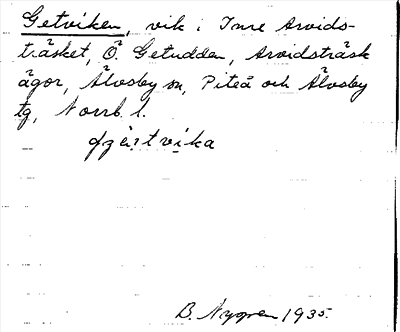 Getviken, vik i Inre Arvids-
träsket, Ö. Getudden, Arvidsträsk
ägor, Älvsby sn, Piteå och Älvsby
tg, Norrb. l.
jɛ̀tvika
B. Nygren 1935.